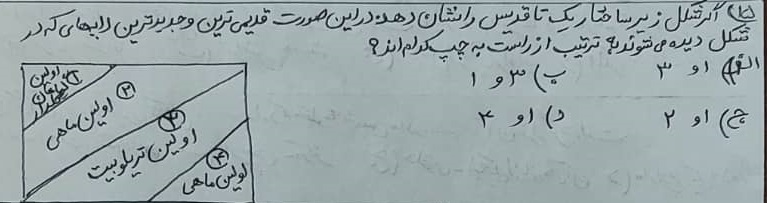 ۱۵) اگر شکل زیر ساختار یک تاقدیس را نشان دهد در این صورت قدیمی ترین و جدیدترین لایه‌ای که در
شکل دیده می شوند به ترتیب از راست به چپ کدام اند؟
الف) ۱ و ۳
ب) ۳ و ۱
ج) ۱ و ۲
د) ۱ و ۴
① اولین گیاهان گلدار
② اولین ماهی
③ اولین تریلوبیت
④ اولین ماهی